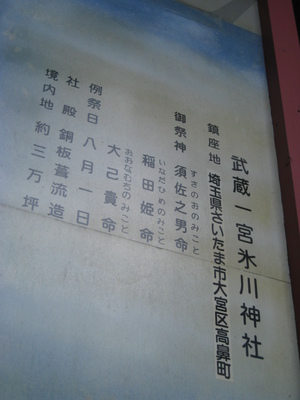 武蔵一宮氷川神社
鎮座地 埼玉県さいたま市大宮区高鼻町
御祭神 須佐之男命
すさのおのみこと
稲田姫命
いなだひめのみこと
大己貴命
おおなむちのみこと
例祭日 八月一日
社殿 銅板葺流造
境内地 約三万坪